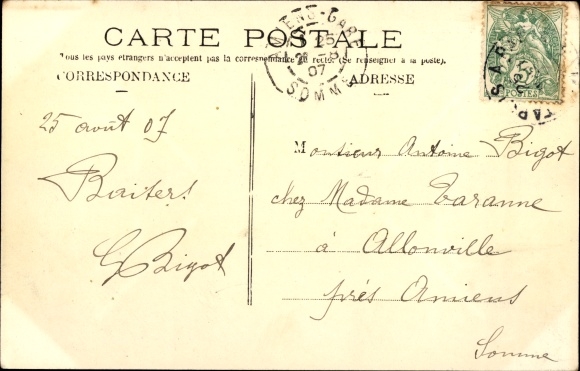 CARTE POSTALE
Tous les pays étrangers n'acceptent pas la correspondance au recto. (Se renseigner à la poste).
CORRESPONDANCE
ADRESSE
AMIENS-GARE
25
07
SOMME
POSTES
25 août 07
Baisers
G Bigot
Monsieur Antoine Bigot
chez Madame Taranne
à Allonville
près Amiens
Somme